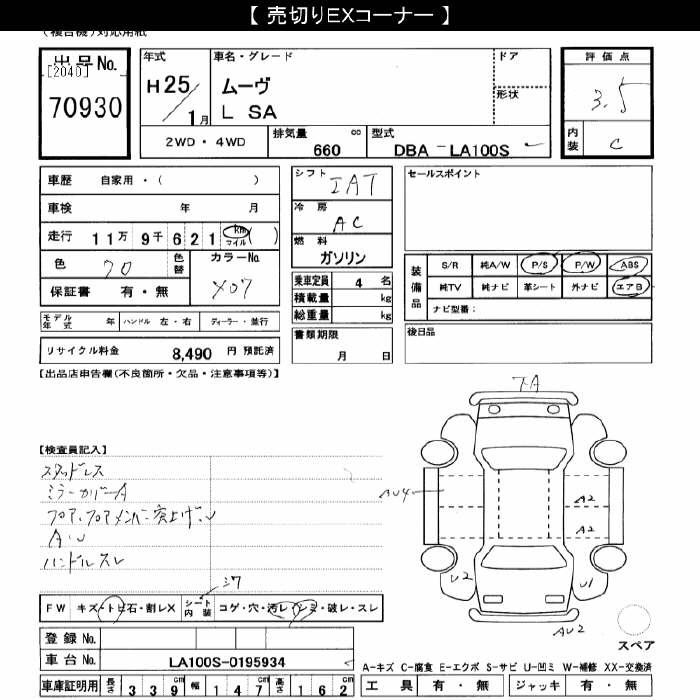 【 売切りEXコーナー 】
(複合機)対応用紙
出品No.
[2040]
70930
年式
H 25/1月
車名・グレード
ムーヴ
L SA
ドア
形状
評価点
3.5
内装
C
2WD・4WD
排気量 cc
660
型式
DBA-LA100S
車歴 自家用・( )
車検 年 月
走行 11万 9千 621 km マイル ( )
色 色替 カラーNo
X07
保証書 有・無
シフト
IAT
冷房
AC
燃料
ガソリン
乗車定員 4 名
積載量 kg
総重量 kg
セールスポイント
装備品
S/R 純A/W P/S P/W ABS
純TV 純ナビ 革シート 外ナビ エアB
ナビ型番:
モデル年式 年 ハンドル 左・右 ディーラー・並行
書類期限
月 日
後日品
リサイクル料金 8,490 円 預託済
【出品店申告欄(不良箇所・欠品・注意事項等)】
下A
【検査員記入】
スタッドレス
ミラーカバーA
フロア、フロアメンバー突上げ、U
A、U
ハンドルスレ
AU4
A2
A2
U2
U1
AU2
シワ
FW キズ・トビ石・割レX シート内装 コゲ・穴・汚レ・シミ・破レ・スレ
登録No.
車台No. LA100S-0195934
スペア
A-キズ C-腐食 E-エクボ S-サビ U-凹ミ W-補修 XX-交換済
車庫証明用 長さ 339cm 幅 147cm 高さ 162cm
工具 有・無 ジャッキ 有・無